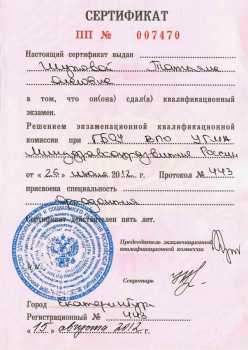 СЕРТИФИКАТ
ПП № 007470
Настоящий сертификат выдан
Татьяне
в том, что он(она) сдал(а) квалификационный
экзамен.
Решением экзаменационной квалификационной
комиссии при ГБОУ ВПО УГМА
Минздравсоцразвития России
от «26» июня 2012 г. Протокол № 443
присвоена специальность
Ортодонтия
Сертификат действителен пять лет.
Председатель экзаменационной
квалификационной комиссии
М.П.
Секретарь
Город Екатеринбург
Регистрационный № 443
«15» августа 2012 г.